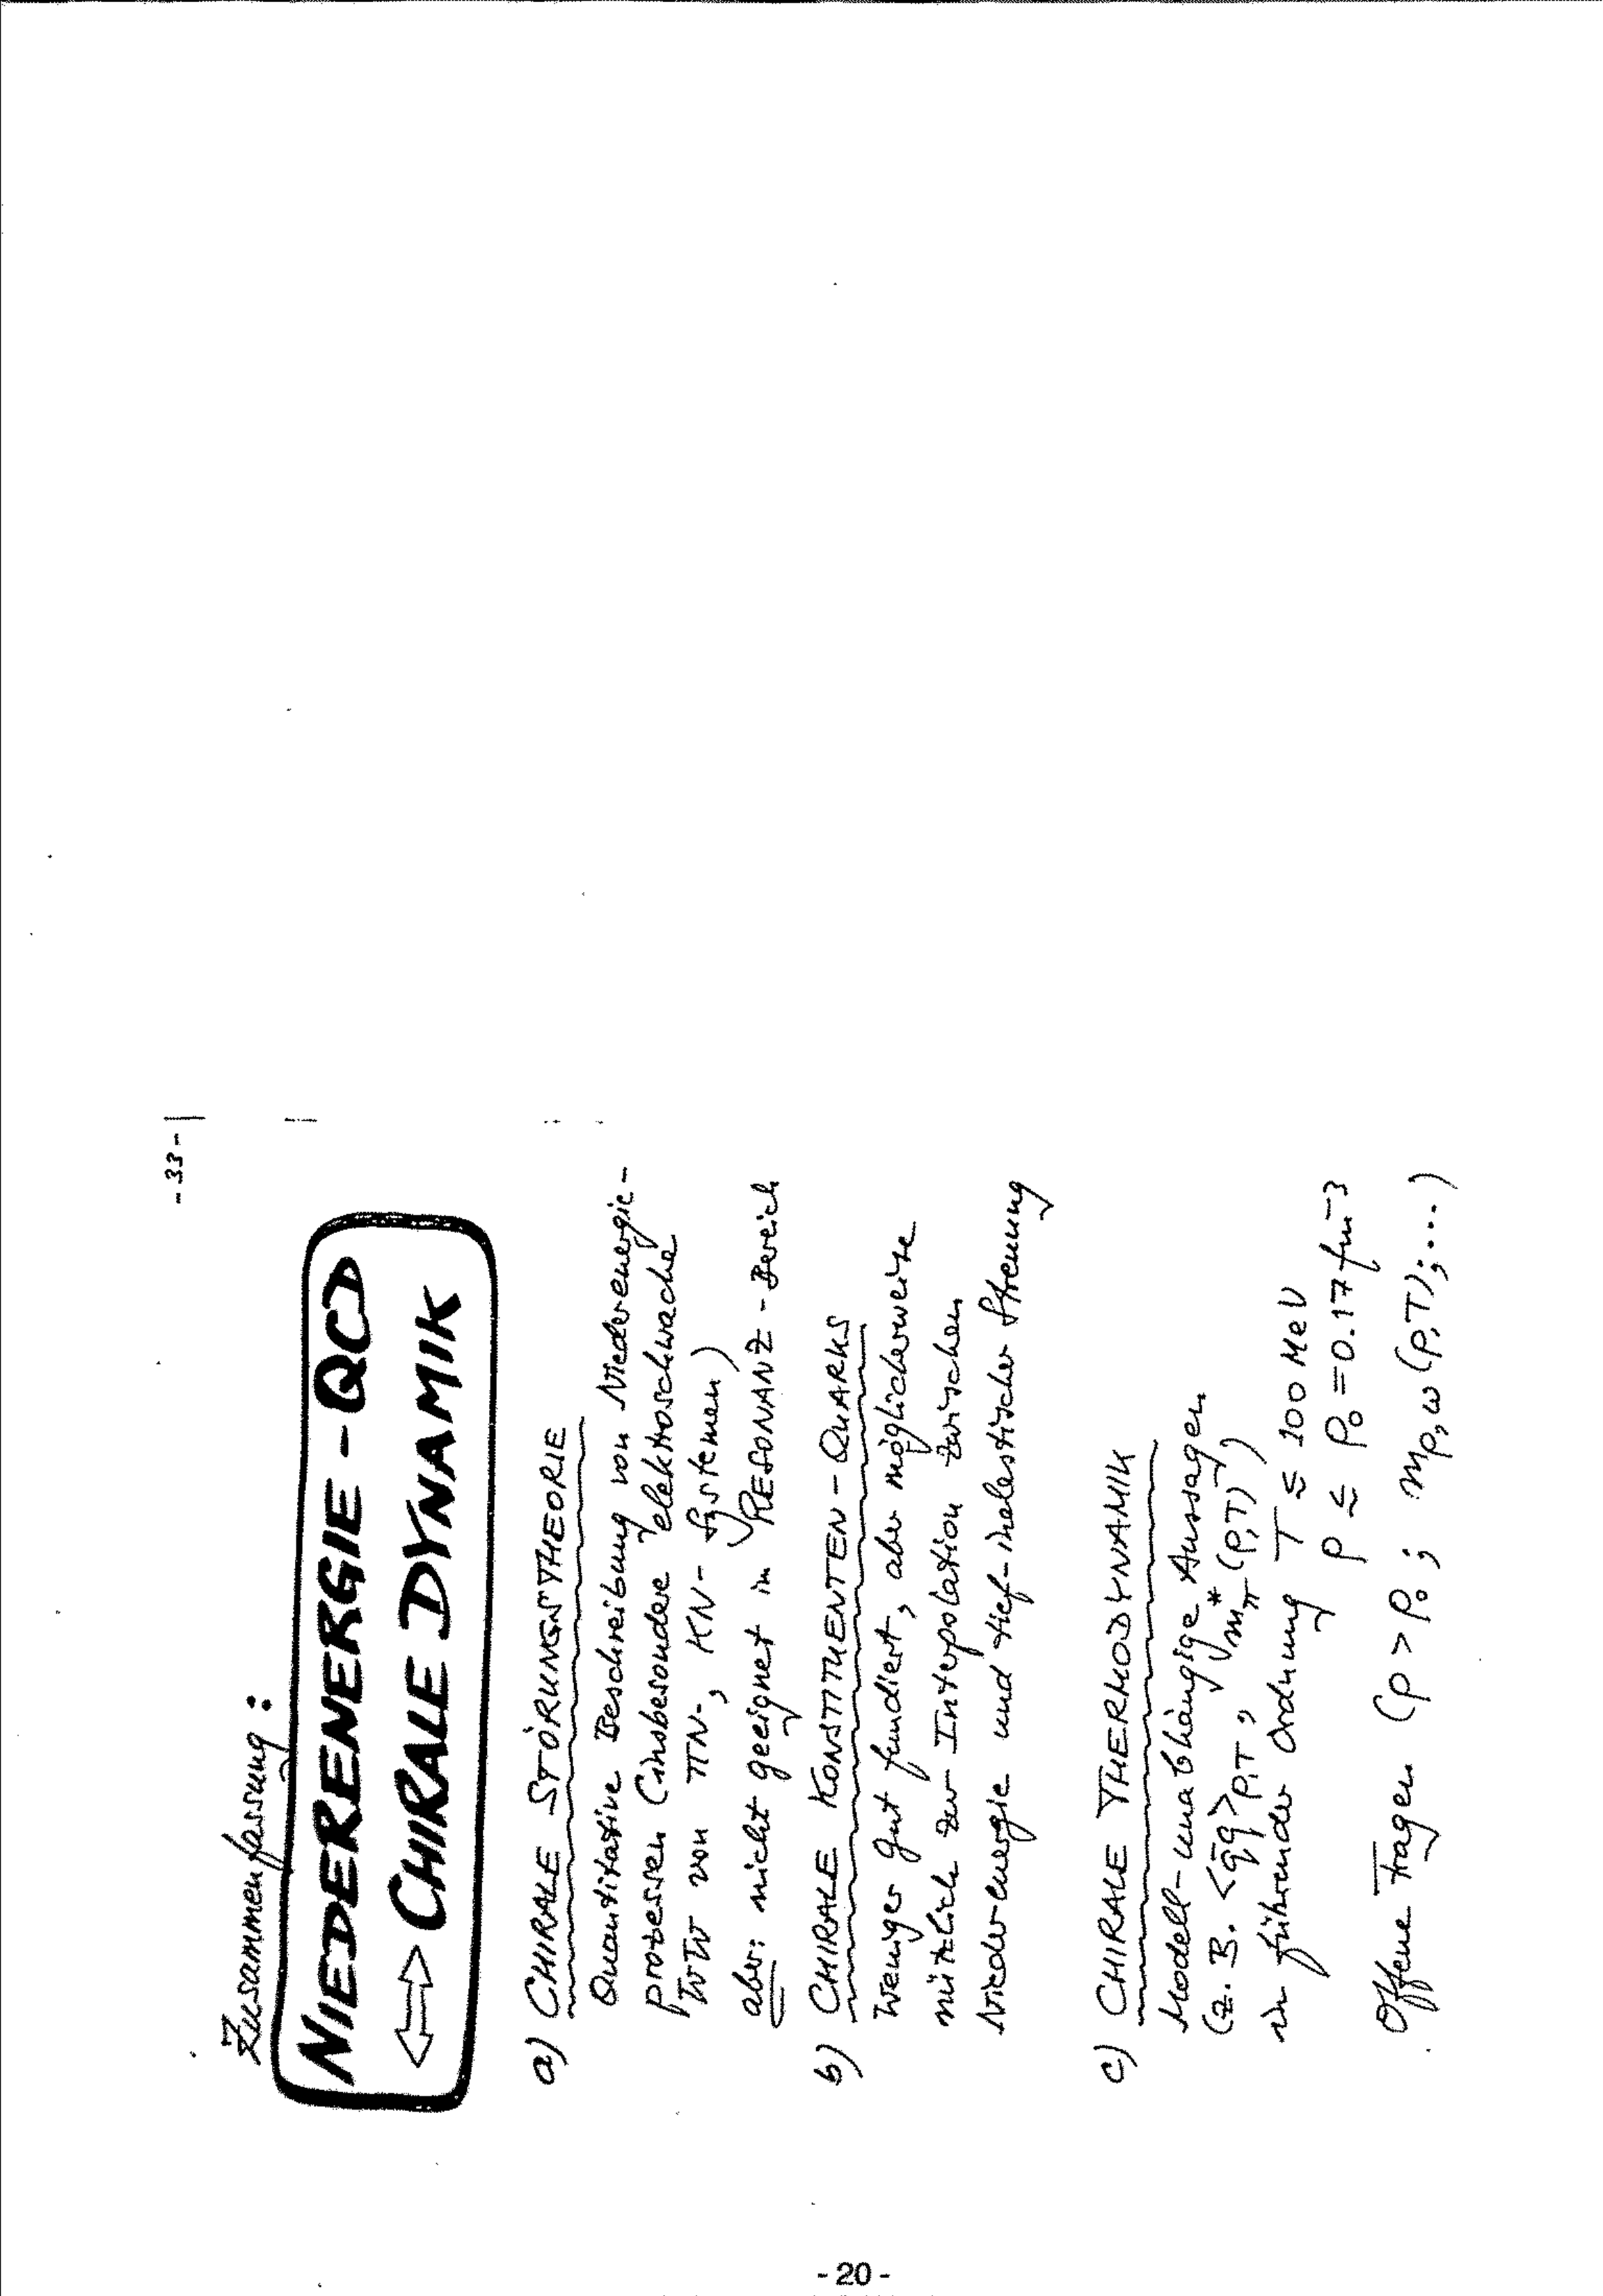 - 33 -
Zusammenfassung :
NIEDERENERGIE - QCD
⟺ CHIRALE DYNAMIK
a) CHIRALE STÖRUNGSTHEORIE
Quantitative Beschreibung von Niederenergie-
prozessen (insbesondere elektroschwache
WW von πN-, KN- Systemen)
aber: nicht geeignet im RESONANZ - Bereich
b) CHIRALE KONSTITUENTEN - QUARKS
weniger gut fundiert, aber möglicherweise
nützlich zur Interpolation zwischen
Niederenergie und tief-inelastischer Streuung
c) CHIRALE THERMODYNAMIK
Modell-unabhängige Aussagen
(z. B. <q̄q>ρ,T , m*π (ρ,T) )
in führender Ordnung T ≲ 100 MeV
ρ ≲ ρ₀ = 0.17 fm⁻³
Offene Fragen (ρ > ρ₀ ; mρ,ω (ρ,T) ; ...)
- 20 -